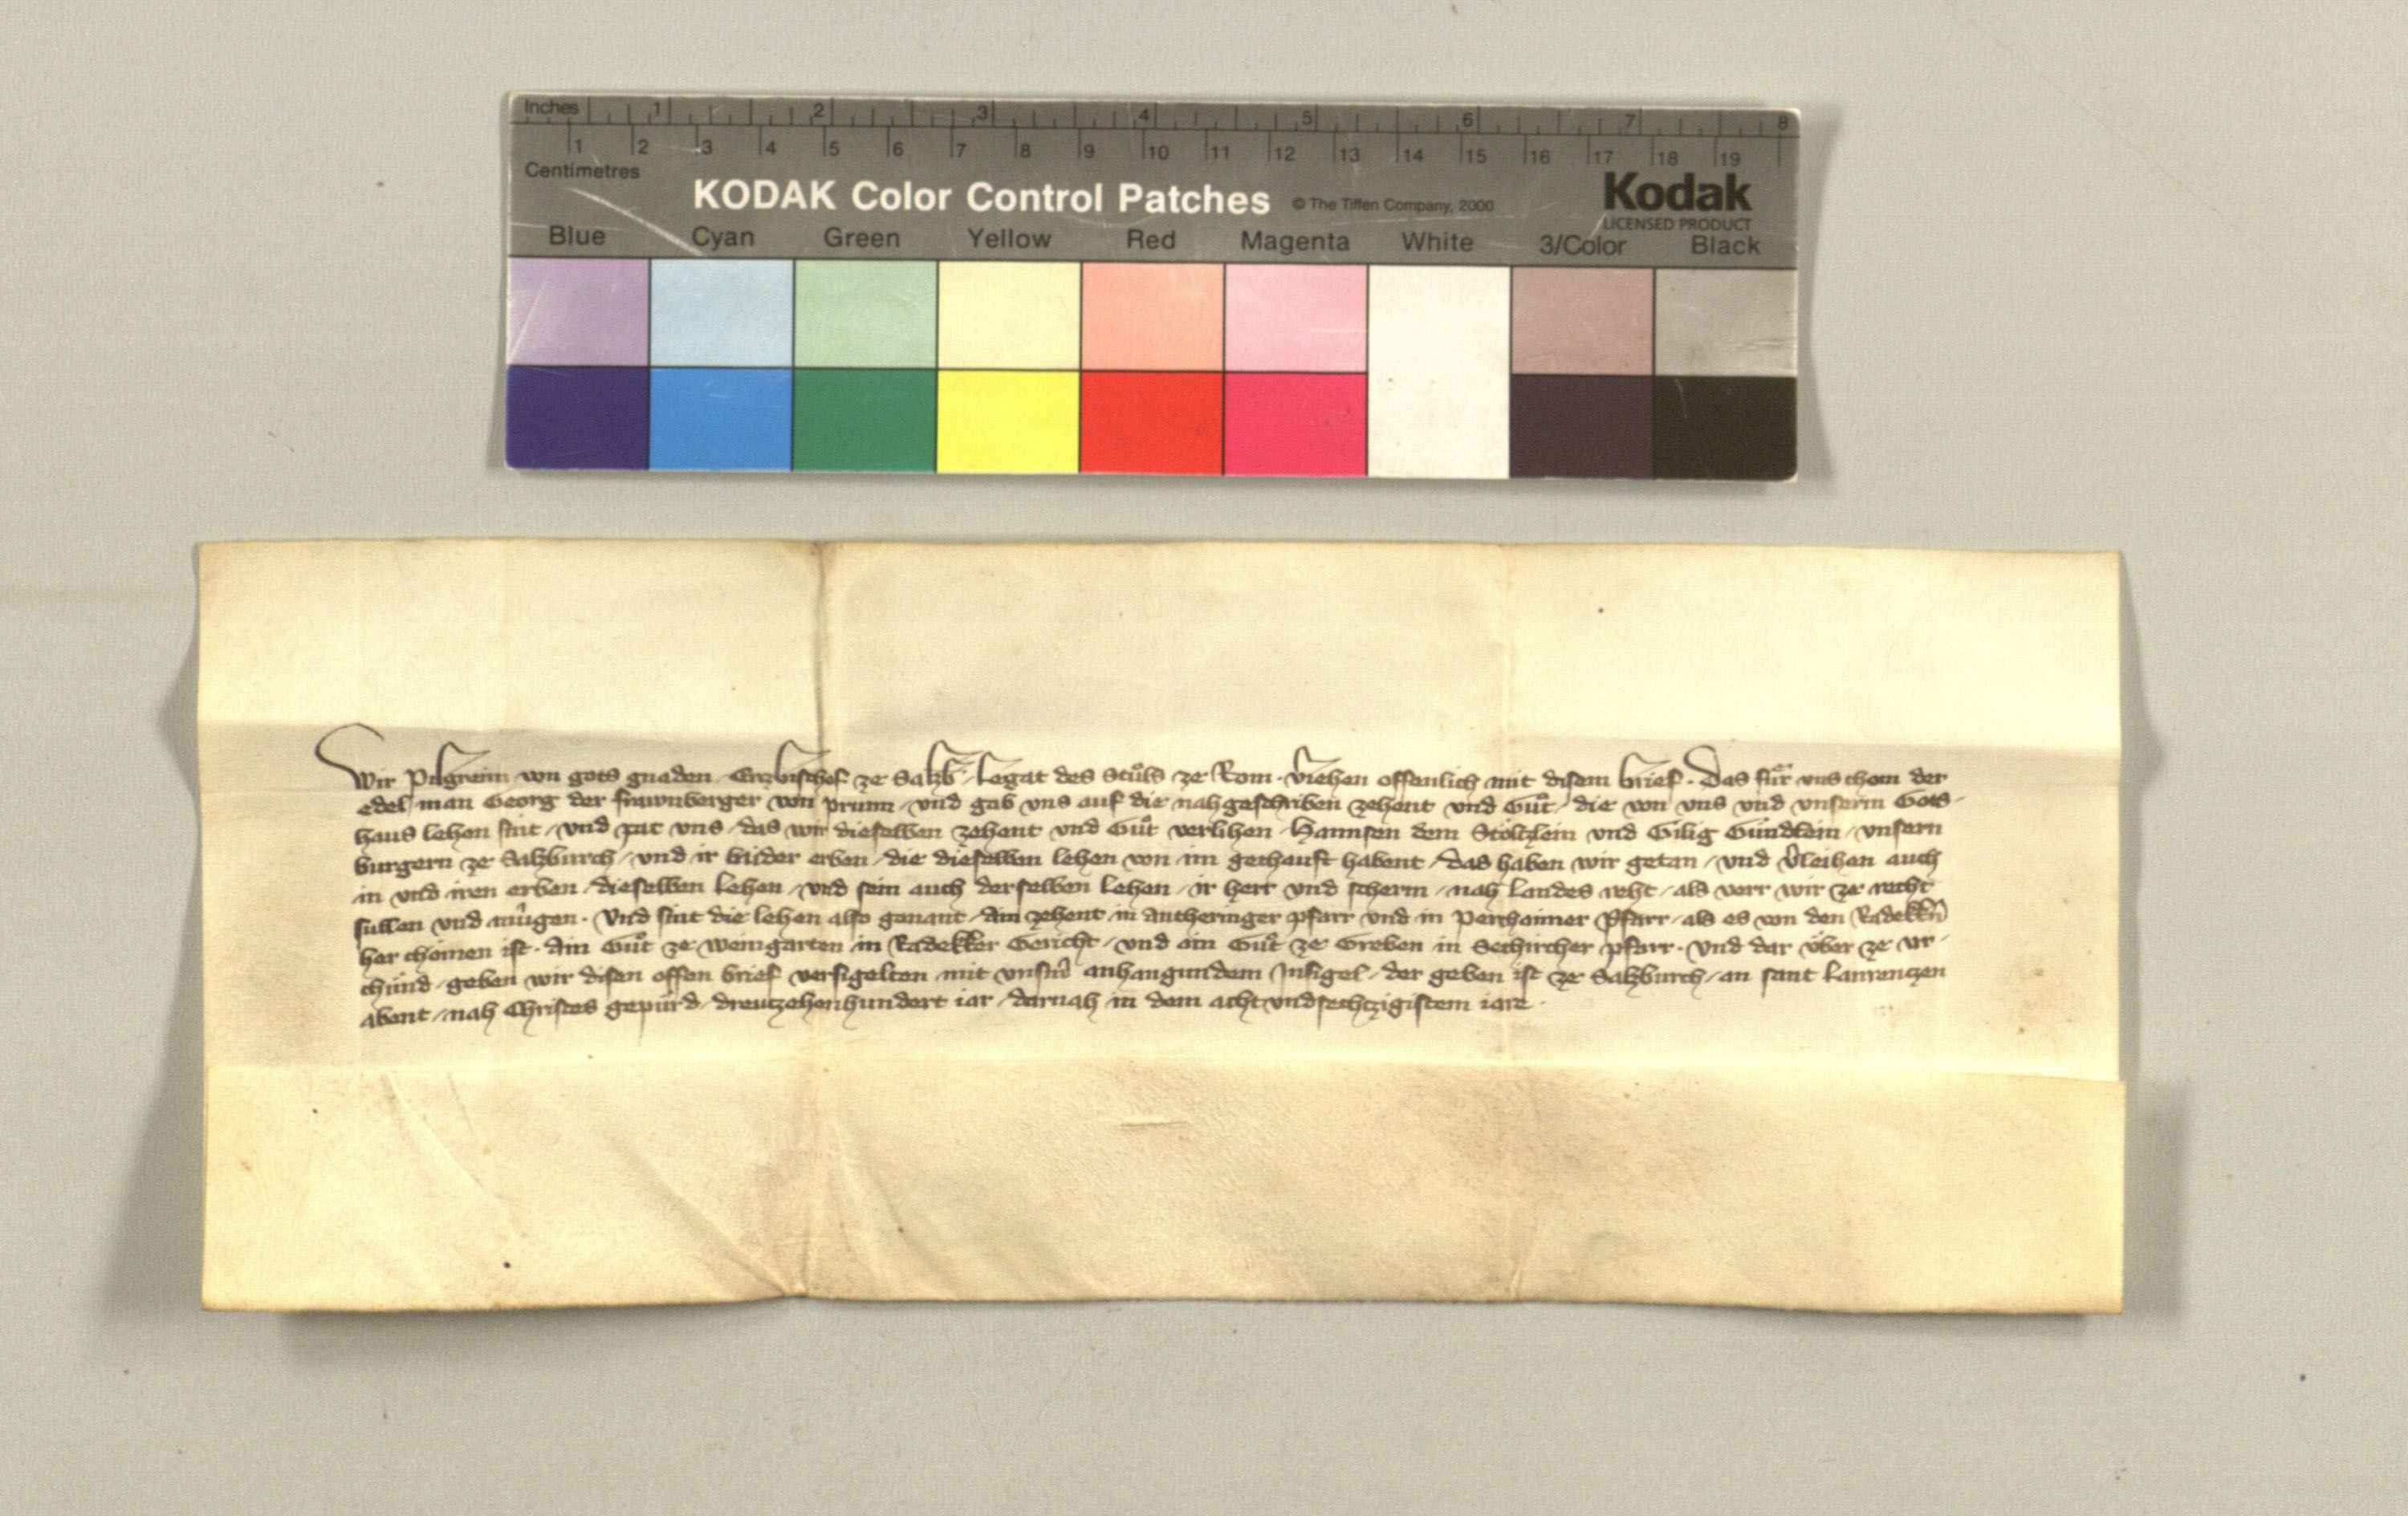 Inches 1 2 3 4 5 6 7 8
1 2 3 4 5 6 7 8 9 10 11 12 13 14 15 16 17 18 19
Centimetres
KODAK Color Control Patches © The Tiffen Company, 2000 Kodak
LICENSED PRODUCT
Blue Cyan Green Yellow Red Magenta White 3/Color Black
Wir Pilgreim von gots gnaden Erzbischof ze Salzb. Legat des Stuͦls ze Rom. v̂iehen offenlich mit disem brief. Das fuͤr uns chom der
edel man Georg der frawnberger von prunn / und gab uns auf die nahgeschriben zehent und Guͦt / die von uns und unserm Gots-
haus lehen sint / und pat uns / das wir dieselben zehent und Guͦt verlihen / Hannsen dem Stoͤltzlein und Gilig Guͤndlein / unsern
burgern ze Salzburch / und ir beider erben / die dieselben lehen von im gechauft habent / das haben wir getan / und v̂leihen auch
in und iren erben / dieselben lehen / und sein auch derselben lehen / ir herr und scherm / nah landes reht / als verr wir ze recht
sullen und muͤgen. Und sint die lehen also genant / Ain zehent in antheringer pfarr und in Percheimer Pfarr / als es von den Radekk̂n
her chomen ist. Ain Guͦt ze weingarten in Radekker Gericht / und ain Guͦt ze Greben in Sechircher pfarr. Und dar uͤber ze ur-
chuͤnd / geben wir disen offen brief versigelten mit unsm̂ anhangundem Insigel / der geben ist ze Salzburch / an sant Laurenczen
abent / nah Christes gepuͤrd / dreutzehenhundert iar / darnah in dem acht undsechtzigistem iare.